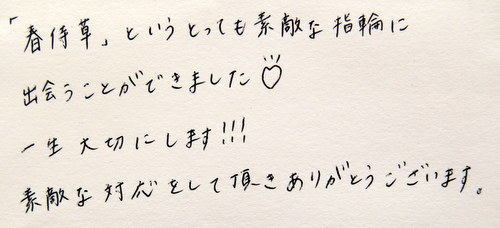 「春待草」というとっても素敵な指輪に
出会うことができました♡
一生大切にします!!!
素敵な対応をして頂きありがとうございます。